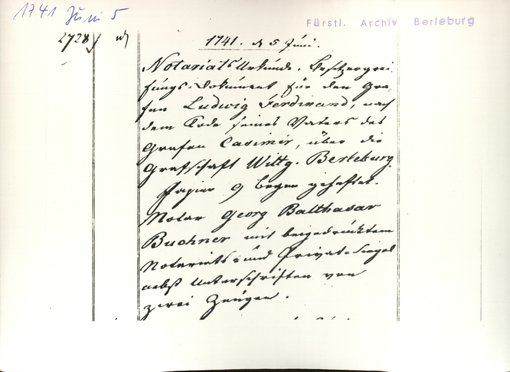 1741 Juni 5
Fürstl. Archiv Berleburg
2728)
1741. d 5 Juni.
Notariats Urkunde. Besitzergrei-
fungs-Dokument für den Gra-
fen Ludwig Ferdinand, nach
dem Tode seines Vaters des
Grafen Casimir, über die
Grafschaft Wittg. Berleburg.
Papier 9 Bogen geheftet.
Notar Georg Balthasar
Buchner mit beigedrucktem
Notariats- und Privat-Siegel
nebst Unterschriften von
zwei Zeugen.